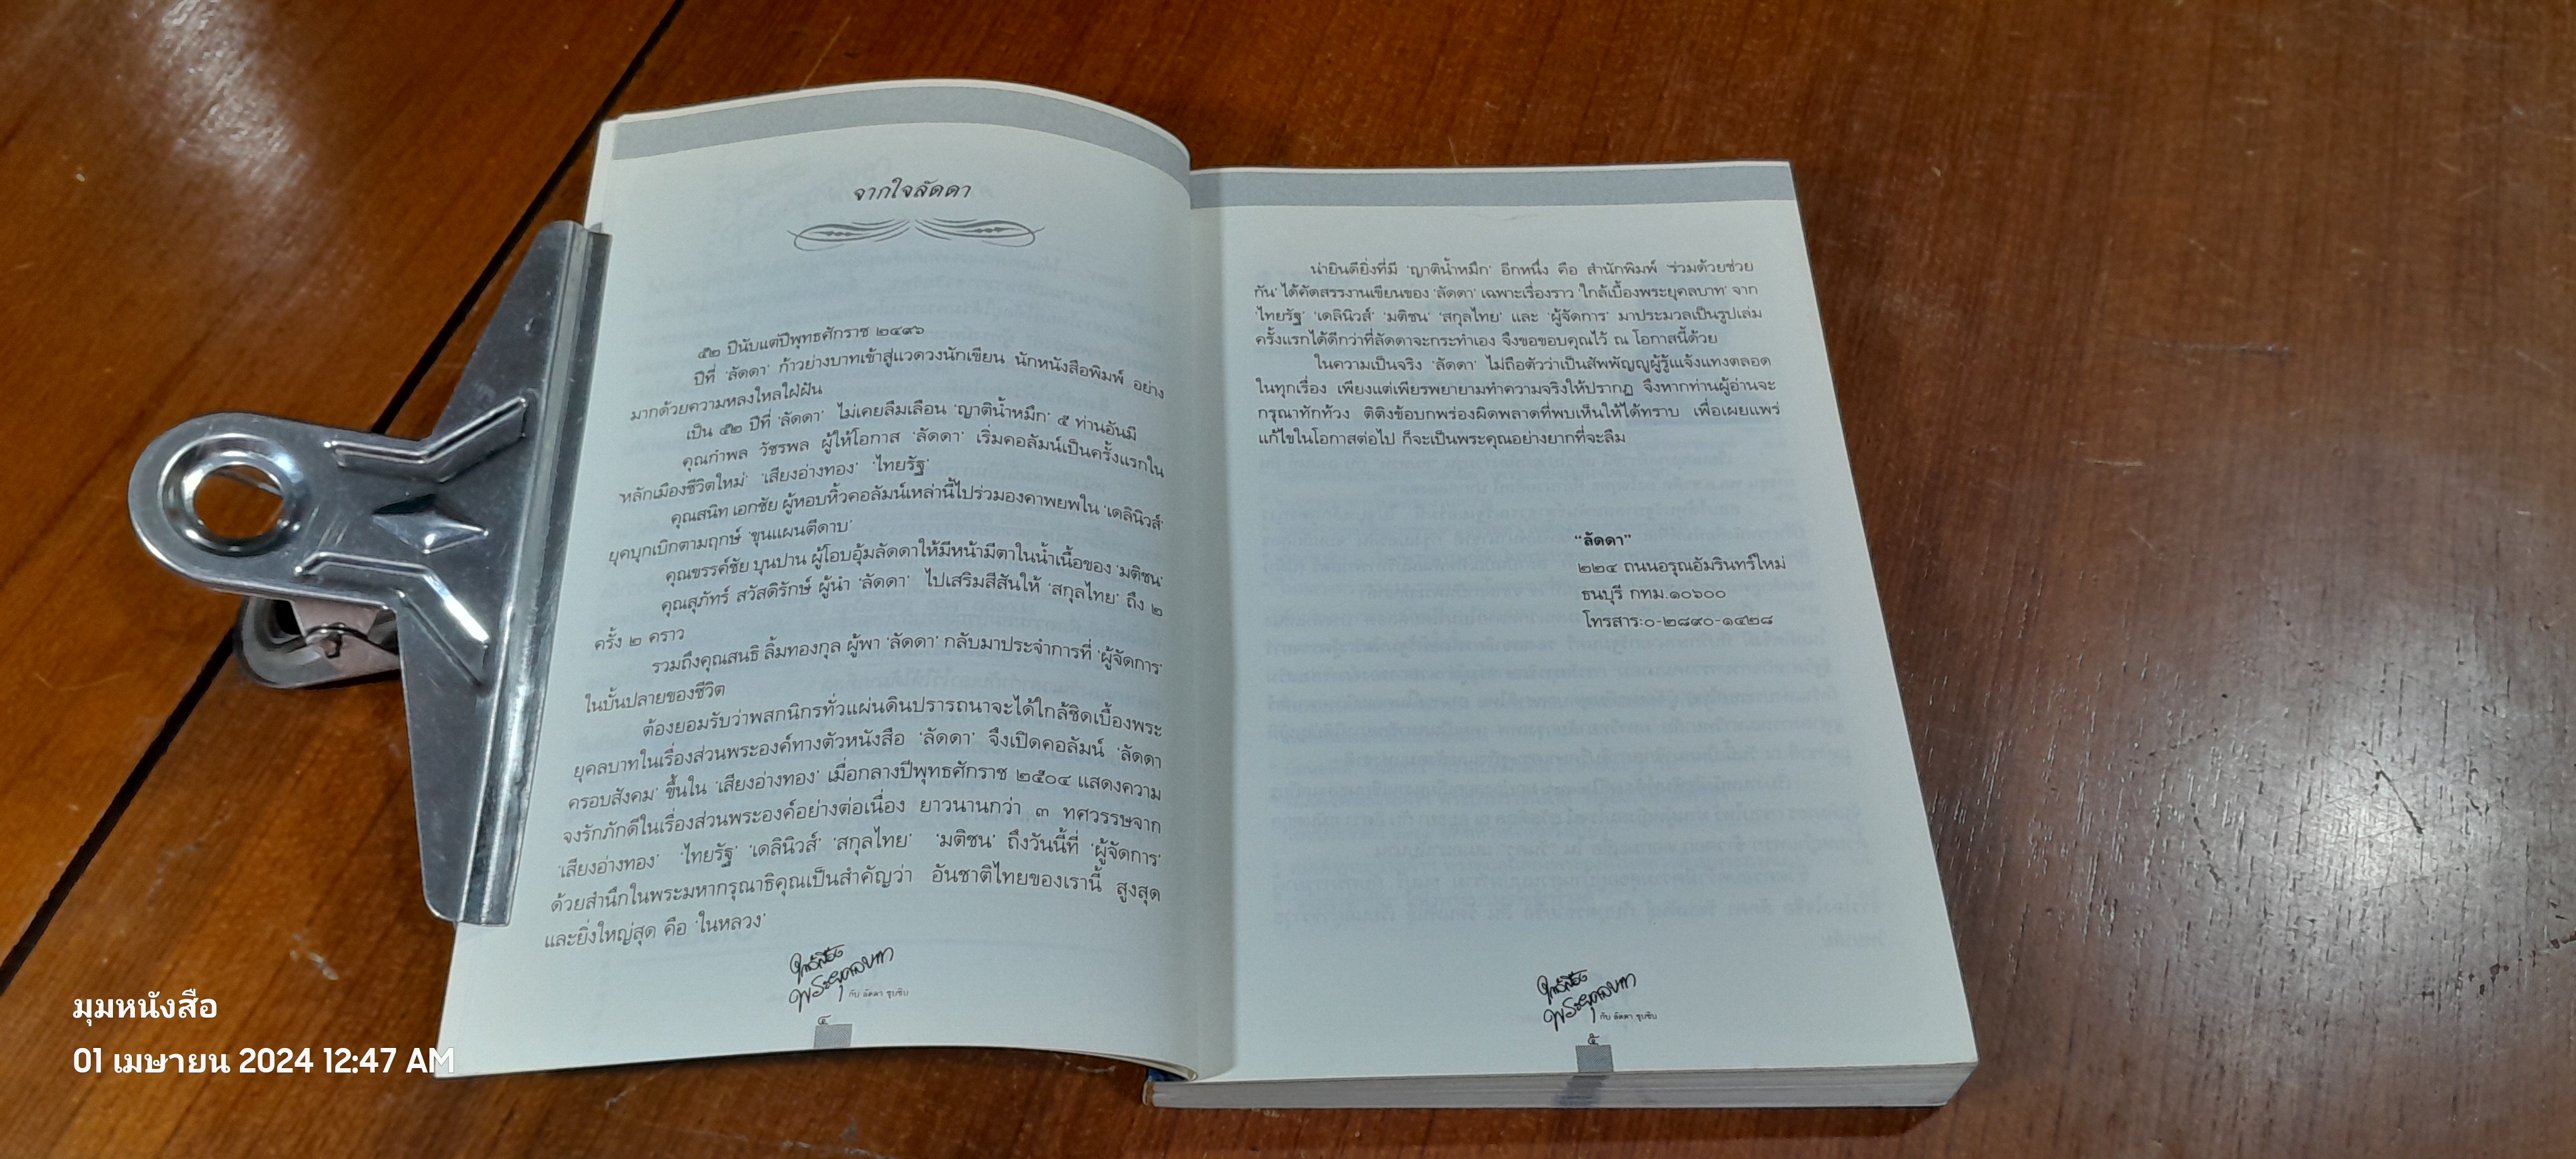 จากใจลัดดา
๕๒ ปีนับแต่ปีพุทธศักราช ๒๔๙๖
ปีที่ 'ลัดดา' ก้าวย่างบาทเข้าสู่แวดวงนักเขียน นักหนังสือพิมพ์ อย่าง
มากด้วยความหลงใหลใฝ่ฝัน
เป็น ๕๒ ปีที่ 'ลัดดา' ไม่เคยลืมเลือน 'ญาติน้ำหมึก' ๕ ท่านอันมี
คุณกำพล วัชรพล ผู้ให้โอกาส 'ลัดดา' เริ่มคอลัมน์เป็นครั้งแรกใน
'หลักเมืองชีวิตใหม่' 'เสียงอ่างทอง' 'ไทยรัฐ'
คุณสนิท เอกชัย ผู้หอบหิ้วคอลัมน์เหล่านี้ไปร่วมองคาพยพใน 'เดลินิวส์'
ยุคบุกเบิกตามฤกษ์ 'ขุนแผนตีดาบ'
คุณขรรค์ชัย บุนปาน ผู้โอบอุ้มลัดดาให้มีหน้ามีตาในน้ำเนื้อของ 'มติชน'
คุณสุภัทร์ สวัสดิรักษ์ ผู้นำ 'ลัดดา' ไปเสริมสีสันให้ 'สกุลไทย' ถึง ๒
ครั้ง ๒ คราว
รวมถึงคุณสนธิ ลิ้มทองกุล ผู้พา 'ลัดดา' กลับมาประจำการที่ 'ผู้จัดการ'
ในบั้นปลายของชีวิต
ต้องยอมรับว่าพสกนิกรทั่วแผ่นดินปรารถนาจะได้ใกล้ชิดเบื้องพระ
ยุคลบาทในเรื่องส่วนพระองค์ทางตัวหนังสือ 'ลัดดา' จึงเปิดคอลัมน์ 'ลัดดา
ครอบสังคม' ขึ้นใน 'เสียงอ่างทอง' เมื่อกลางปีพุทธศักราช ๒๕๐๔ แสดงความ
จงรักภักดีในเรื่องส่วนพระองค์อย่างต่อเนื่อง ยาวนานกว่า ๓ ทศวรรษจาก
'เสียงอ่างทอง' 'ไทยรัฐ' 'เดลินิวส์' 'สกุลไทย' 'มติชน' ถึงวันนี้ที่ 'ผู้จัดการ'
ด้วยสำนึกในพระมหากรุณาธิคุณเป็นสำคัญว่า อันชาติไทยของเรานี้ สูงสุด
และยิ่งใหญ่สุด คือ 'ในหลวง'
ใกล้เบื้อง
พระยุคลบาท
กับ ลัดดา ซุบซิบ
๔
น่ายินดียิ่งที่มี 'ญาติน้ำหมึก' อีกหนึ่ง คือ สำนักพิมพ์ 'ร่วมด้วยช่วย
กัน' ได้คัดสรรงานเขียนของ 'ลัดดา' เฉพาะเรื่องราว 'ใกล้เบื้องพระยุคลบาท' จาก
'ไทยรัฐ' 'เดลินิวส์' 'มติชน' 'สกุลไทย' และ 'ผู้จัดการ' มาประมวลเป็นรูปเล่ม
ครั้งแรกได้ดีกว่าที่ลัดดาจะกระทำเอง จึงขอขอบคุณไว้ ณ โอกาสนี้ด้วย
ในความเป็นจริง 'ลัดดา' ไม่ถือตัวว่าเป็นสัพพัญญูผู้รู้แจ้งแทงตลอด
ในทุกเรื่อง เพียงแต่เพียรพยายามทำความจริงให้ปรากฏ จึงหากท่านผู้อ่านจะ
กรุณาทักท้วง ติติงข้อบกพร่องผิดพลาดที่พบเห็นให้ได้ทราบ เพื่อเผยแพร่
แก้ไขในโอกาสต่อไป ก็จะเป็นพระคุณอย่างยากที่จะลืม
"ลัดดา"
๒๒๔ ถนนอรุณอัมรินทร์ใหม่
ธนบุรี กทม.๑๐๖๐๐
โทรสาร:๐-๒๘๙๐-๑๔๒๘
ใกล้เบื้อง
พระยุคลบาท
กับ ลัดดา ซุบซิบ
๕
มุมหนังสือ
01 เมษายน 2024 12:47 AM